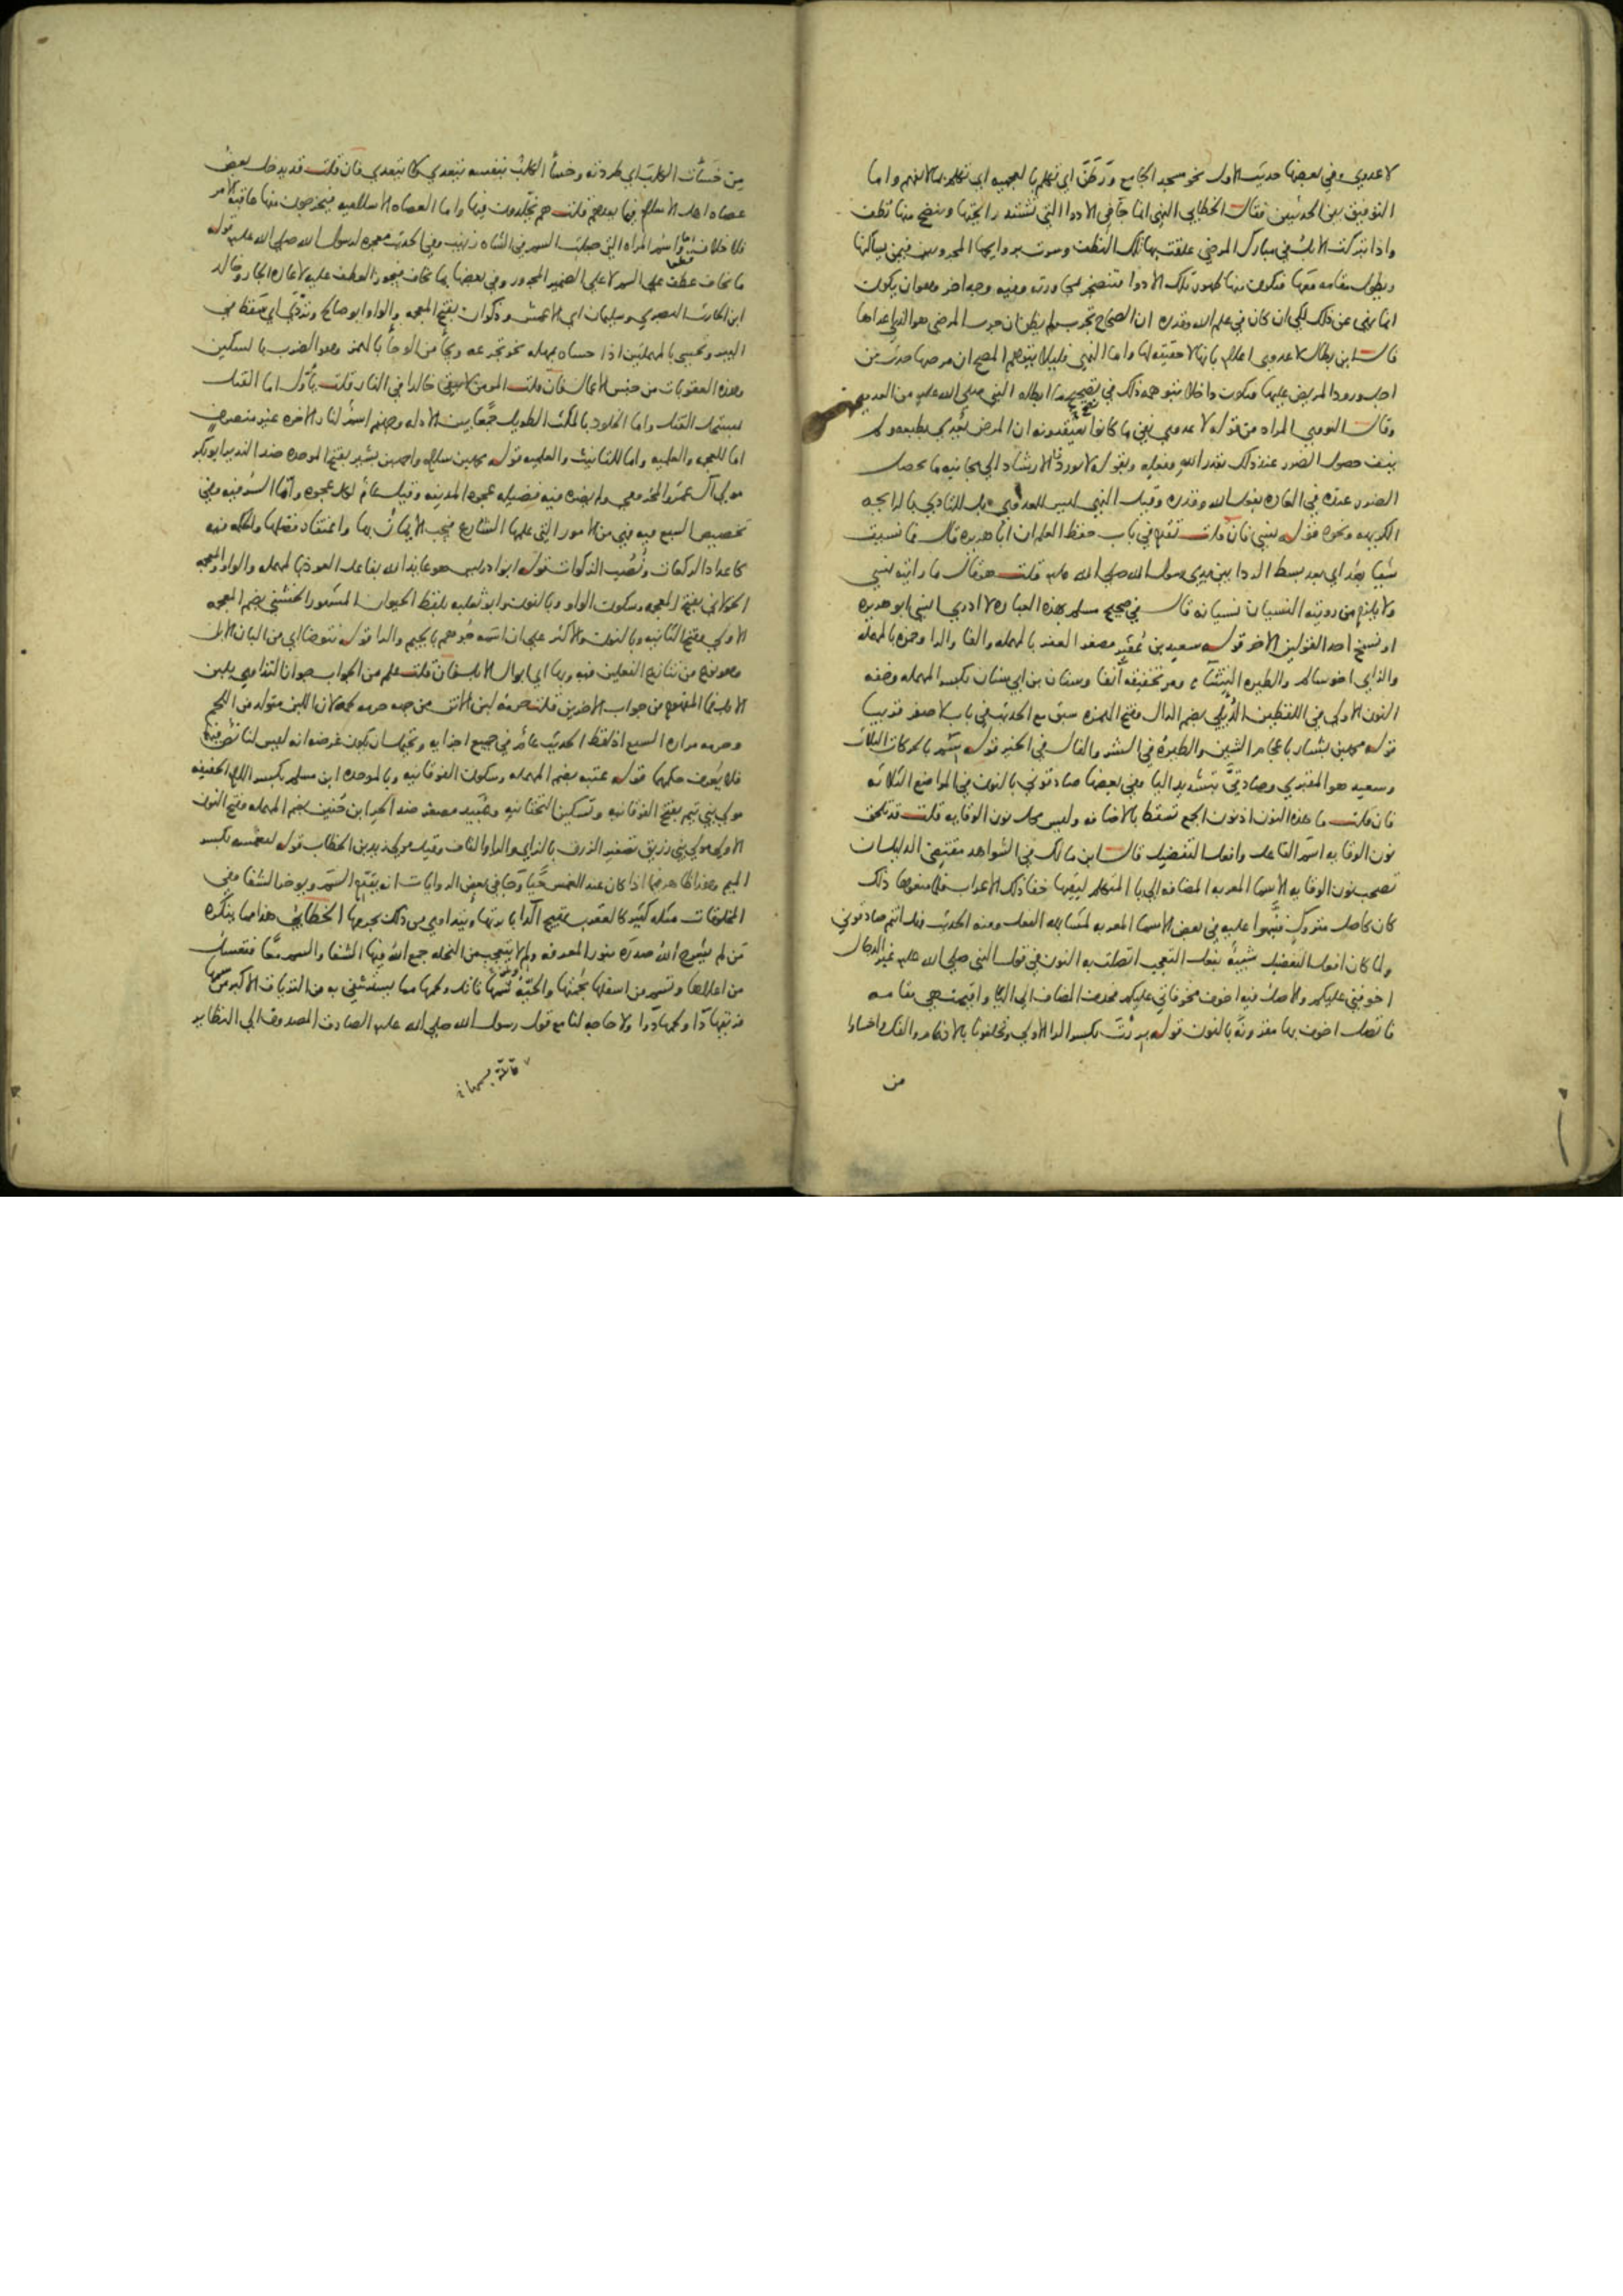 لا عدوى وفي بعضها حديث الاول نحو مسجد الجامع ورطن اي تكلم بالعجميه اي تكلم بما لا يفهم واما
التوفيق بين الحديثين فقال الخطابي النهي انما جا في الادوا التي تشتد رايحتها وينضح منها نطف
واذا تبركت الابل في مبارك المرضى علقت بها تلك النطف وسرت بروايحها المحرومين فيمن يساكنها
ويطول مقامه معها فتكون منها ظهور تلك الادوا
انما نهى عن ذلك لكي ان كان في علم الله وقدره ان الصحاح تجرب يظن ان جرب المرضى هو الذي اعداها
قال ابن بطال لا عدوى اعلام بانها لا حقيقه لها واما النهي فليلا يتوهم المصح ان مرضها حدث من
اجل ورود المريض عليها فيكون داخلا بتوهمه ذلك في تصحيح ما ابطله النبي صلى الله عليه من العدوى
وقال النووي المراد من قوله لا عدوى نفي ما كانوا يعتقدونه ان المرض يعدي بطبعه ولم
ينف حصول الضرر عند ذلك بقدر الله وفعله وبقوله لا يورد الارشاد الى مجانبه ما يحصل
الضرر عنده في العاده بفعل الله وقدره وقيل النهي ليس للعدوى بل للتاذي بالرايحه
الكريهه ونحوه قوله ينسى فان قلت تقدم في باب حفظ العلم ان ابا هريره قال فما نسيت
شيئا بعد اي بعد بسط الردا بين يدي رسول الله صلى الله عليه قلت هو قال ما رايته نسي
ولا يلزم من رويته النسيان نسيانه قال في صحيح مسلم بهذه العباره لا ادري انسي ابو هريره
او نسخ احد القولين الاخر قوله سعيد بن عفير مصغر العفر بالمهمله والفا والرا وحمزه بالمهمله
والزاي اخو سالم والطيره ومر تحقيقه آنفا وسنان بن ابي سنان بكسر المهمله وخفه
النون الاولى في اللفظين الدولي بضم الدال وفتح الهمزه سبق مع الحديث في باب لا صفر قريبا
قوله محمد بن بشار باعجام الشين والطيره في الشر والفال في الخير قوله سم بالحركات الثلاث
وسعيد هو المقبري وصادقي بتشديد اليا وفي بعضها صادقوني بالنون في المواضع الثلاثه
فان قلت ما هذه النون اذ نون الجمع تسقط بالاضافه وليس محل نون الوقايه قلت قد تلحق
نون الوقايه اسم الفاعل وافعل التفضيل قال ابن مالك في الشواهد مقتضى الدليل ان
تصحب نون الوقايه الاسما المعربه المضافه الى يا المتكلم ليقيها خفا ذلك الاعراب فلما منعوها ذلك
كان كاصل متروك فنبهوا عليه في بعض الاسما المعربه لمشابهه الفعل ومنه الحديث فهل انتم صادقوني
ولما كان افعل التفضيل شبيها بفعل التعجب اتصلت به النون في قول النبي صلى الله عليه غير الدجال
اخوفني عليكم والاصل فيه اخوف مخوفاتي عليكم فحذف المضاف الى اليا واقيمت هي مقامه
فاتصل اخوف بها مقرونه بالنون قوله بررت بكسر الرا الاولى وتخلفونا بالادغام والفك واخسئوا
من
من خسأت الكلب اي طردته وخسأ الكلب بنفسه يتعدى ولا يتعدى فان قلت قد يدخل بعض
عصاه اهل الاسلام فيها بعدهم قلت هم يخلدون فيها واما العصاه الاسلاميه فيخرجون منها عاقبه الامر
فلا خلافه واسم المراه التي جعلت السم في الشاه زينب وفي الحديث معجزه لرسول الله صلى الله عليه قوله
ما يخاف عطف على السم لا على الضمير المجرور وفي بعضها بما يخاف فيجوز العطف عليه لاعاده الجار وخالد
ابن الحارث البصري وسليمان اي الاعمش وذكوان بفتح المعجمه والواو ابو صالح وتردى اي سقط في
البير وتحسى بالمهملتين اذا حساه بمهله نحو تجرعه ويجا من الوجا بالهمز وهو الضرب بالسكين
وهذه العقوبات من جنس الاعمال فان قلت المومن لا يبقى خالدا في النار قلت يأول اما القتل
بمستحل القتل واما الخلود بالمكث الطويل جمعا بين الادله وجهنم اسم لنار الاخره غير منصرف
اما للعجمه والعلميه واما للتانيث والعلميه قوله محمد بن سلام واحمد بن بشير بفتح الموحده ضد النذير ابو بكر
مولى آل عمرو المخزومي ولم يضره فيه فضيله عجوه المدينه وقيل عام لكل عجوه واما السر فيه وفي
تخصيص السبع فيه فهي من الامور التي علمها الشارع فيجب الايمان بها واعتقاد فضلها والحكمه فيه
كاعداد الركعات ونصب الزكوات قوله ابو ادريس هو عايذ الله بفاعل العوذ بالمهمله والواو والمعجمه
الخولاني بفتح المعجمه وسكون الواو وبالنون وابو ثعلبه بلفظ الحيوان المشهور الخشني بضم المعجمه
الاولى وفتح الثانيه وبالنون والاكثر على ان اسمه جرهم بالجيم والرا قوله نتوضا اي من البان الابل
وهو نوع من تنازع الفعلين فيه وربما اي ابوال الابل فان قلت علم من الجواب جواز التداوي بلبن
الاتان فما المفهوم من جواب الاخرين قلت حرمه لبن الاتن من جهه حرمه لحمه لان اللبن متولد من اللحم
وحرمه مراره السبع اذ لفظ الحديث عام في جميع اجزايه ويحتمل ان يكون غرضه انه ليس لنا نص فيهما
فلا يعرف حكمهما قوله عتبه بضم المهمله وسكون الفوقانيه وبالموحده ابن مسلم بكسر اللام الخفيفه
مولى بني تيم بفتح الفوقانيه وتسكين التحتانيه وعبيد مصغر ضد الحر ابن حنين بضم المهمله وفتح النون
الاولى مولى بني زريق تصغير الزرق بالزاي والرا والقاف وقيل مولى زيد بن الخطاب قوله ليغمسه بكسر
الميم وهذا ظاهر فيما اذا كان عند الغمس حيا وجا في بعض الروايات انه يقدم السم ويوخر الشفا وفي
المخلوقات مثله كثير كالعقرب يهيج الدا بابرتها ويتداوى من ذلك بجرمها الخطابي هذا مما ينكره
من لم يشرح الله صدره بنور المعرفه ولم لا يتعجب من النحله جمع الله فيها الشفا والسم معا فتعسل
من اعلاها وتسم من اسفلها بحمتها والحيه سمها قاتل ولحمها مما يستشفى به من الترياق الاكبر
فريقها دا ولحمها دوا ولا حاجه لنا مع قول رسول الله صلى الله عليه الصادق المصدوق الى النظاير